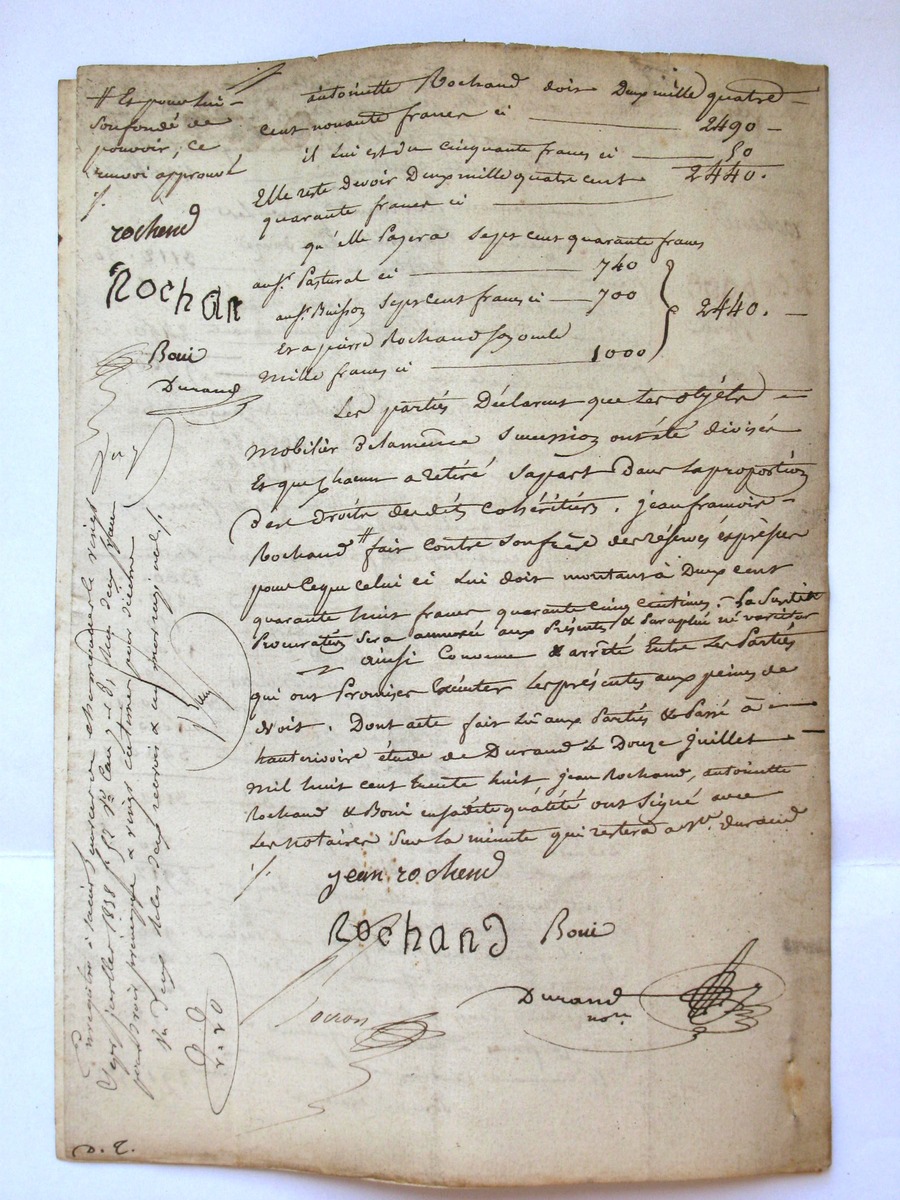 # Et pour lui
son fondé de
pouvoir, ce
renvoi approuvé
rochend
Rochan
Boui
Durand
antoinette Rochand doit Deux mille quatre
cent nonante francs ci 2490 -
il lui est du cinquante francs ci 50
Elle reste devoir Deux mille quatre cent 2440.
quarante francs ci
qu'elle Payera Sept cent quarante francs
au Sr. Pastural ci 740
au Sr. Buisson Sept cent francs ci 700
2440. -
Et a pierre Rochand
Mille francs ci 1000
Les parties Déclarent que les objets
mobilier de la même Sucession ont été divisés
Et que Chacun a retiré Sa part Dans la proportion
des Droits des dits cohéritiers. jean francois
Rochand # fait contre Son frère des réserves expresses
pour Ce que celui ci Lui doit montant à Deux cent
quarante huit francs quarante cinq centimes. La Susdite
Procuration Sera annexée aux Présentes & Paraphée né varietur
ainsi Convenu & arrêté Entre Les Parties
qui ont Promises Exécuter Les présentes aux peines de
droit. Dont acte fait Lû aux Parties & Passé à
hauterivoire étude de Durand Le Douze Juillet
mil huit cent trente huit jean Rochand, antoinette
Rochand & Boui en sadite qualité ont Signé avec
Les Notaires Sur La minute qui restera a Me. Durand
jean rochend
Rochand Boui
Durand
nore
Enregistré à Saint
juillet 1838 f. 57
D. E.